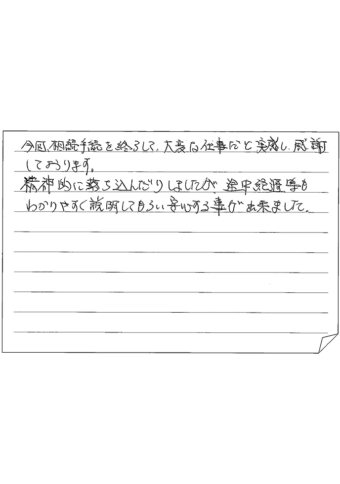 今回、相続手続を終えて、大変な仕事だと実感し、感謝
しております。
精神的に落ち込んだりしましたが、途中経過等も
わかりやすく説明してもらい安心する事が出来ました。